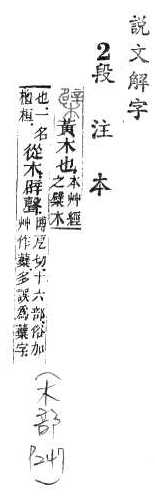 說文解字
2段注本
檗 黃木也。本艸經之檗木
也。一名檀桓。從木。辟聲。博戹切。十六部。俗加艸作蘗。多誤爲蘖字
(木部 P247)